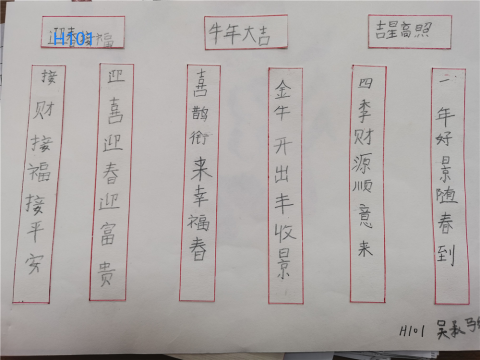 迎春接福
H101
牛年大吉
吉星高照
接财接福接平安
迎喜迎春迎富贵
喜鹊衔来幸福春
金牛开出丰收景
四季财源顺意来
年好景随春到
H101 吴